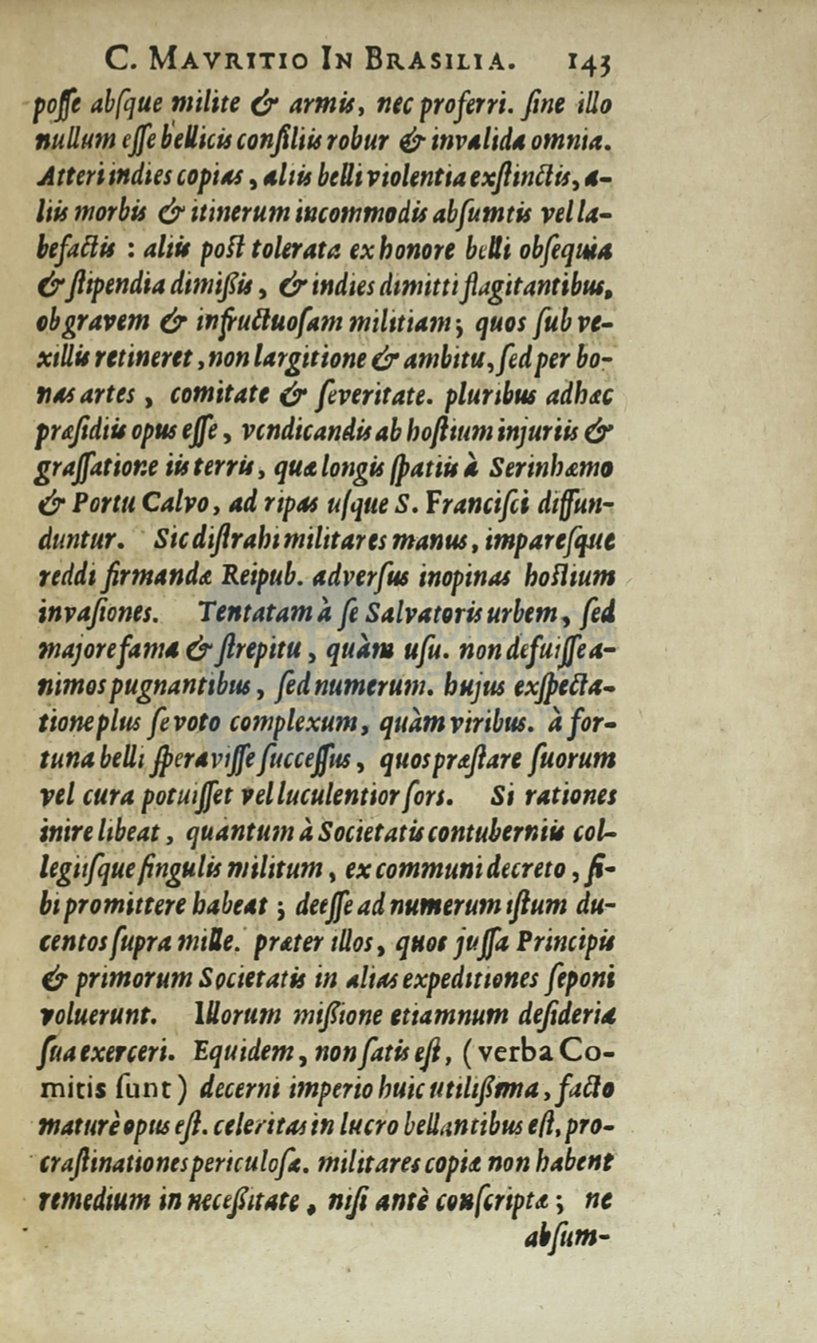 C. MAVRITIO IN BRASILIA. 143
poſſe abſque milite & armis, nec proferri. ſine illo
nullum eſſe bellicis conſiliis robur & invalida omnia.
Atteri indies copias, aliis belli violentia exſtinctis, a-
liis morbis & itinerum incommodis abſumtis vel la-
befactis : aliis poſt tolerata ex honore belli obſequia
& ſtipendia dimiſſis, & indies dimitti flagitantibus,
ob gravem & infructuoſam militiam; quos ſub ve-
xillis retineret, non largitione & ambitu, ſed per bo-
nas artes, comitate & ſeveritate. pluribus adhæc
præſidiis opus eſſe, vendicandis ab hoſtium injuriis &
graſſatione iis terris, quæ longis ſpatiis à Serinhæmo
& Portu Calvo, ad ripas uſque S. Franciſci diffun-
duntur. Sic diſtrahi militares manus, impareſque
reddi firmandæ Reipub. adverſus inopinas hoſtium
invaſiones. Tentatam à ſe Salvatoris urbem, ſed
majore fama & ſtrepitu, quàm uſu. non defuiſſe a-
nimos pugnantibus, ſed numerum. hujus exſpecta-
tione plus ſe voto complexum, quàm viribus. à for-
tuna belli ſperaviſſe ſucceſſus, quos præſtare ſuorum
vel cura potuiſſet vel luculentior ſors. Si rationes
inire libeat, quantum à Societatis contuberniis col-
legiiſque ſingulis militum, ex communi decreto, ſi-
bi promittere habeat; deeſſe ad numerum iſtum du-
centos ſupra mille. præter illos, quos juſſa Principis
& primorum Societatis in alias expeditiones ſeponi
voluerunt. Illorum miſſione etiamnum deſideria
ſua exerceri. Equidem, non ſatis eſt, (verba Co-
mitis ſunt) decerni imperio huic utiliſſima, facto
maturè opus eſt. celeritas in lucro bellantibus eſt, pro-
craſtinationes periculoſæ. militares copiæ non habent
remedium in neceſſitate, niſi antè conſcriptæ; ne
abſum-